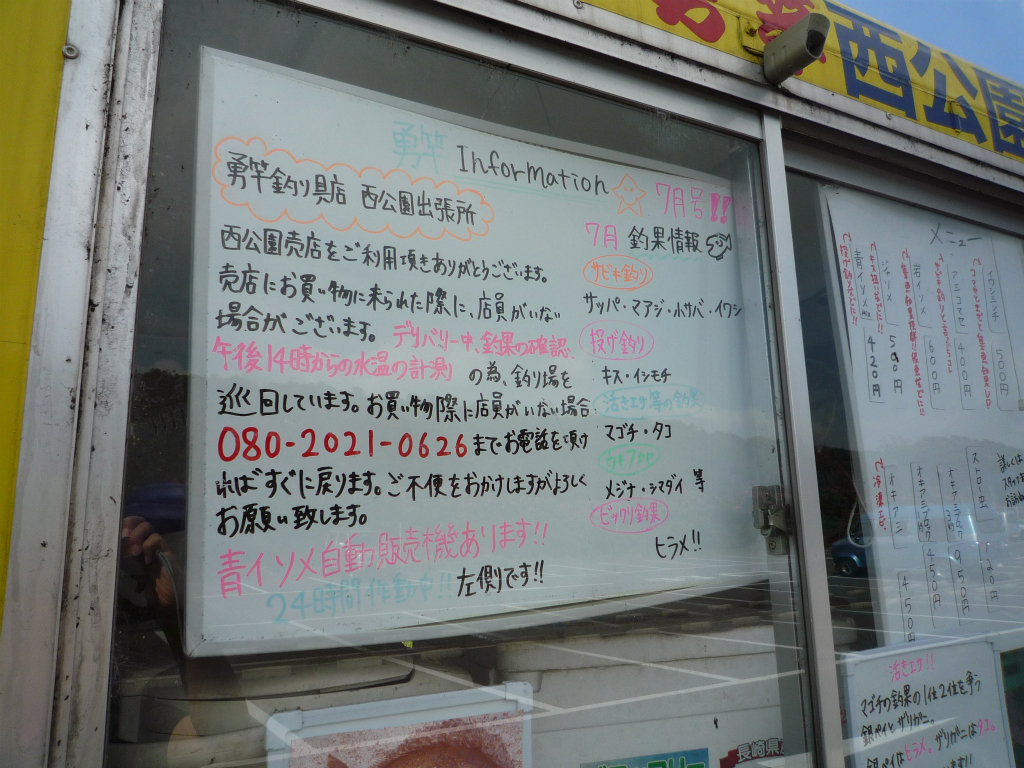 西公園
勇竿 Information
7月号!!
勇竿釣り具店 西公園出張所
西公園売店をご利用頂きありがとうございます。
売店にお買い物に来られた際に、店員がいない
場合がございます。デリバリー中、釣果の確認、
午後14時からの水温の計測 の為、釣り場を
巡回しています。お買い物際に店員がいない場合
080-2021-0626までお電話を頂け
ればすぐに戻ります。ご不便をおかけしますがよろしく
お願い致します。
青イソメ自動販売機あります!!
24時間作動中!! 左側です!!
7月 釣果情報
サビキ釣り
サッパ・マアジ・小サバ・イワシ
投げ釣り
キス・イシモチ
活きエサ等の釣果
マゴチ・タコ
メジナ・シマダイ 等
ビックリ釣果
ヒラメ!!
メニュー
青イソメ 420円
ジャリメ 500円
岩イソメ 600円
アミコマセ 400円
500円
オキアミ 450円
450円
950円
120円
活きエサ!!
マゴチの釣果の1位2位を争う
銀ペイとザリガニ。
銀ペイはヒラメ。ザリガニはタコ。
長崎県